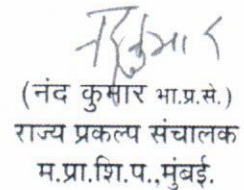 (नंद कुमार भा.प्र.से.)
राज्य प्रकल्प संचालक
म.प्रा.शि.प.,मुंबई.